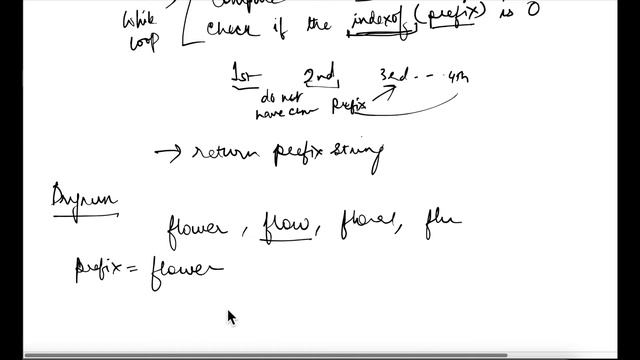 While loop
check if the indexof (prefix) is 0
1st 2nd 3rd - - - 4th
do not have prefix
→ return prefix string
Dryrun
flower, flow, floral, flu
prefix = flower